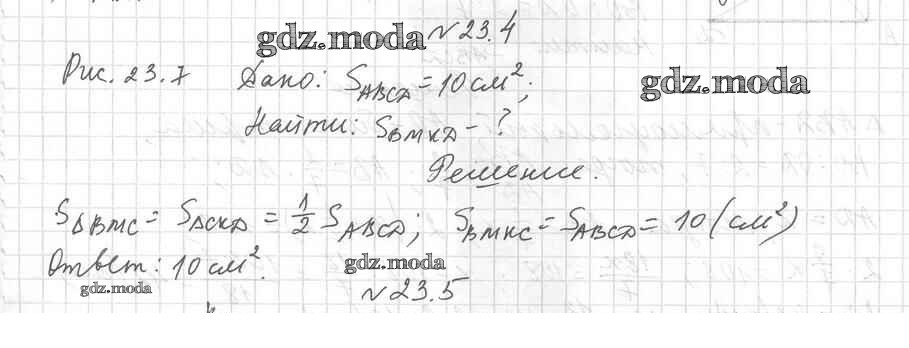 gdz.moda №23.4
Рис. 23.7 Дано: S_ABCD = 10 см²; gdz.moda
Найти: S_BMKD - ?
Решение.
S_ΔBMC = S_ΔCKD = 1/2 S_ABCD; S_BMKC = S_ABCD = 10 (см²)
Ответ: 10 см². gdz.moda
gdz.moda №23.5